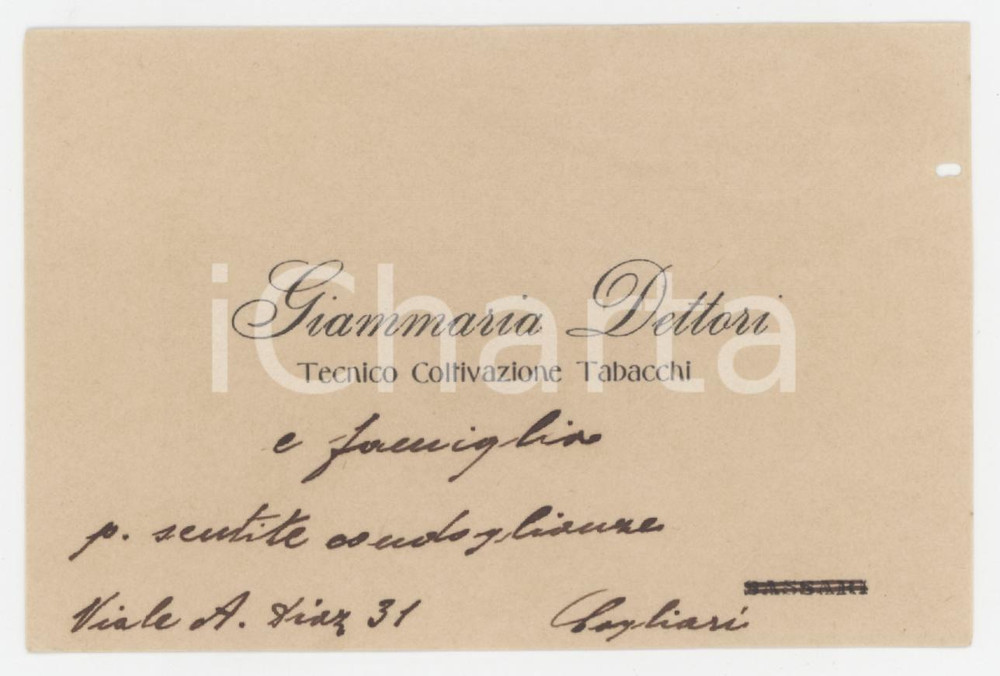 Giammaria Dettori
iCharta
Tecnico Coltivazione Tabacchi
e famiglia
p. sentite condoglianze
SASSARI
Viale A. Diaz 31 Cagliari